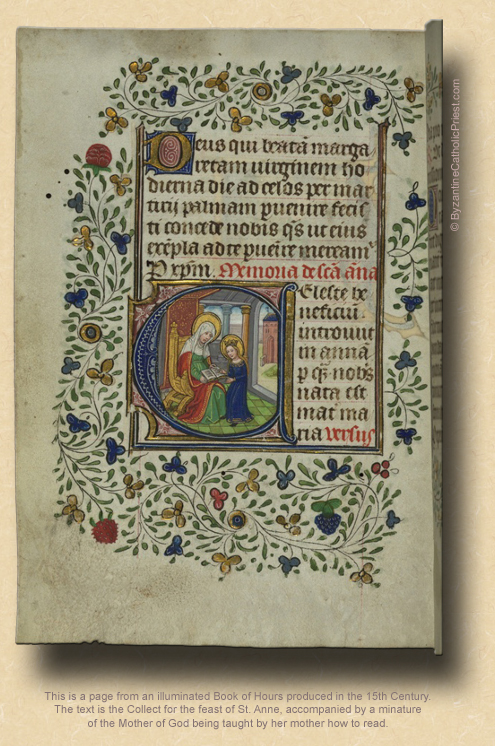 Deus qui beatā marga
retam uirginem ho
dierna die ad celos per mar
tirij palmam puenire fecis
ti concede nobis qs ut eius
exēpla ad te pueire meream
P xpm. Memoria de scā āna
Celeste be
neficiū
introiuit
in annā
p qz nobis
nata est
mat ma
ria versus
© ByzantineCatholicPriest.com
This is a page from an illuminated Book of Hours produced in the 15th Century.
The text is the Collect for the feast of St. Anne, accompanied by a minature
of the Mother of God being taught by her mother how to read.